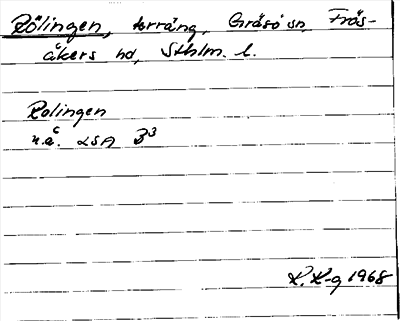 Rölingen, terräng, Gräsö sn, Frös-
åkers hd, Sthlm. l.
Rolingen
u.å. LSA B3
K. K-g 1968